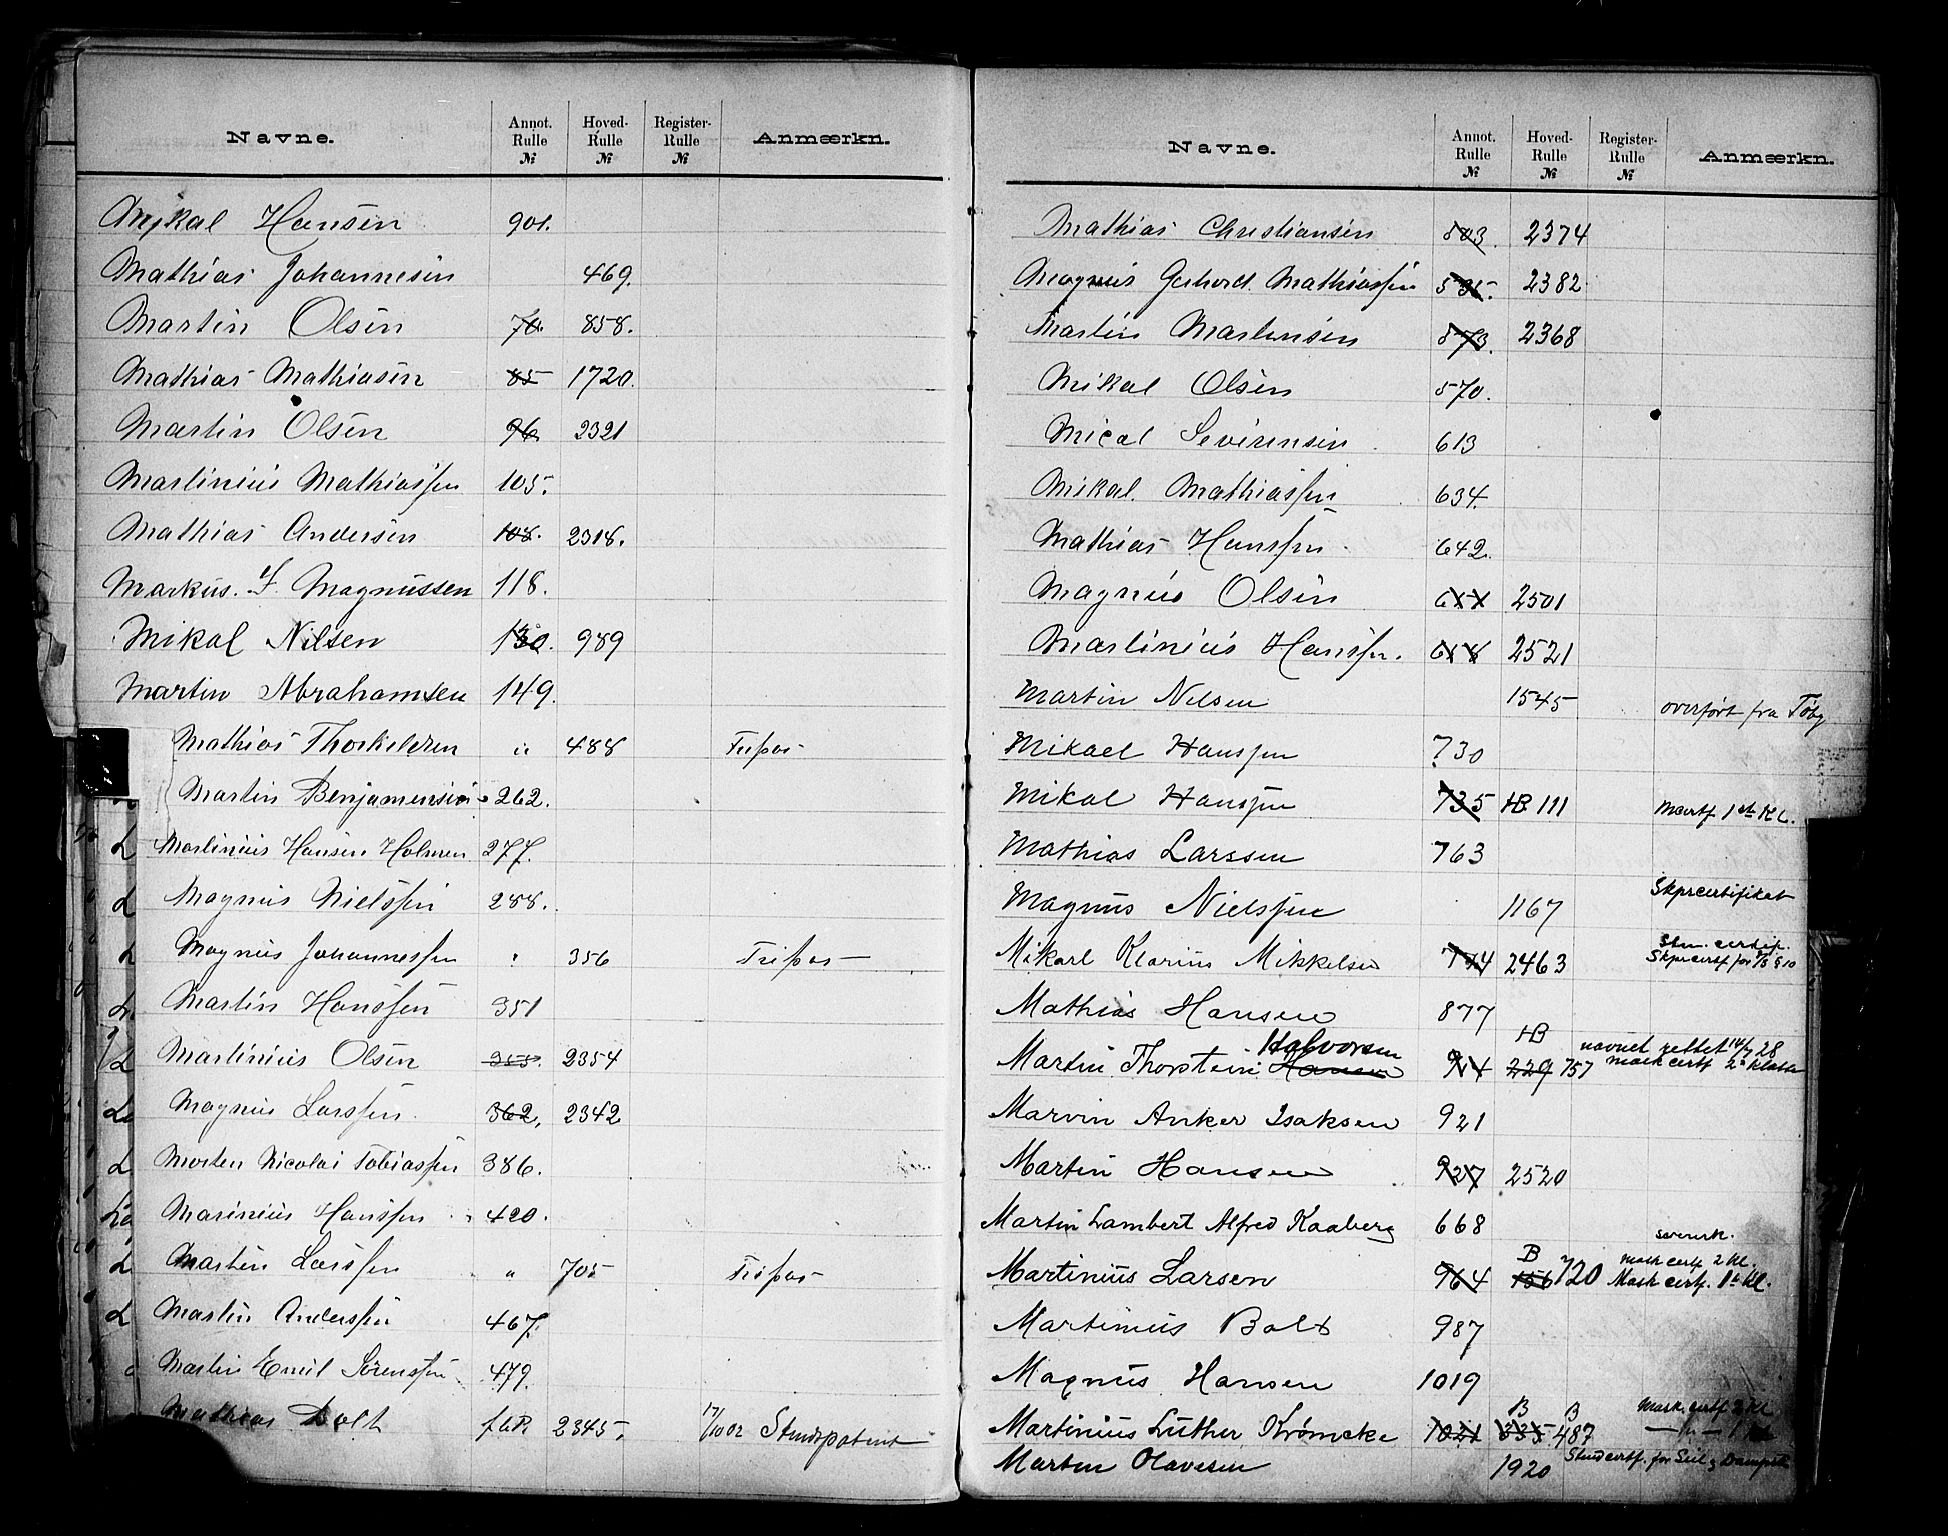 Navne. Annot. Rulle № Hoved-Rulle № Register-Rulle № Anmærkn.
Mikal Hansen 901.
Mathias Johannesen 469.
Martin Olsen 70. 858.
Mathias Mathiasen 85 1720.
Martin Olsen 96. 2321
Martinius Mathiassen 105.
Mathias Andersen 108. 2318.
Markus. F. Magnussen 118.
Mikal Nilsen 130. 989
Martin Abrahamsen 149.
Mathias Thorkildsen " 488 Fripas
Martin Benjaminsen 262.
Martinius Hansen Holmen 277.
Magnus Nielssen 288.
Magnus Johannessen " 356 Fripas
Martin Hanssen 351
Martinius Olsen 355. 2354
Magnus Larssen 362. 2342
Morten Nicolai Tobiassen 386.
Marinius Hanssen 420.
Martin Larssen " 705 Fripas
Martin Anderssen 467.
Martin Emil Sørenssen 479.
Mathias Bolt 2345. 17/10 02 Styrmpatent
Navne. Annot. Rulle № Hoved-Rulle № Register-Rulle № Anmærkn.
Mathias Christiansen 503. 2374
Magnus Gerhard Mathiassen 535. 2382
Martin Martinsen 573. 2368
Mikal Olsen 570.
Mical Severinsen 613
Mikal Mathiassen 634.
Mathias Hanssen 642.
Magnus Olsen 2501
Martinius Hanssen. 658 2521
Martin Nilsen 1545 overført fra Tøby
Mikael Hanssen 730
Mikal Hanssen 735 HB 111 Mcertf 1ste Kl.
Mathias Larssen 763
Magnus Nielssen 1167 Skprcertifikat
Mikael Klarius Mikkelsen 794 2463 Stm. certif. Skprcertf for
Mathias Hansen 877
Martin Thorstein Hansen Halvorsen 914 HB 229 757 navnet rettet 14/7 28 mask certf 2 klasse
Marvin Anker Isaksen 921
Martin Hansen 927 2520
Martin Lambert Alfred Kaaberg 668
Martinius Larsen 964 B 156 720 mask certf 2 Kl. Mask certf. 1st Kl.
Martinius Bolt 987
Magnus Hansen 1019
Martinius Luther Krømcke 1021 B 335 B 487 Mask. certf 2 Kl — " — 1 Kl
Martin Olavesen 1920 Stmd certf. for Seil og Dampsk